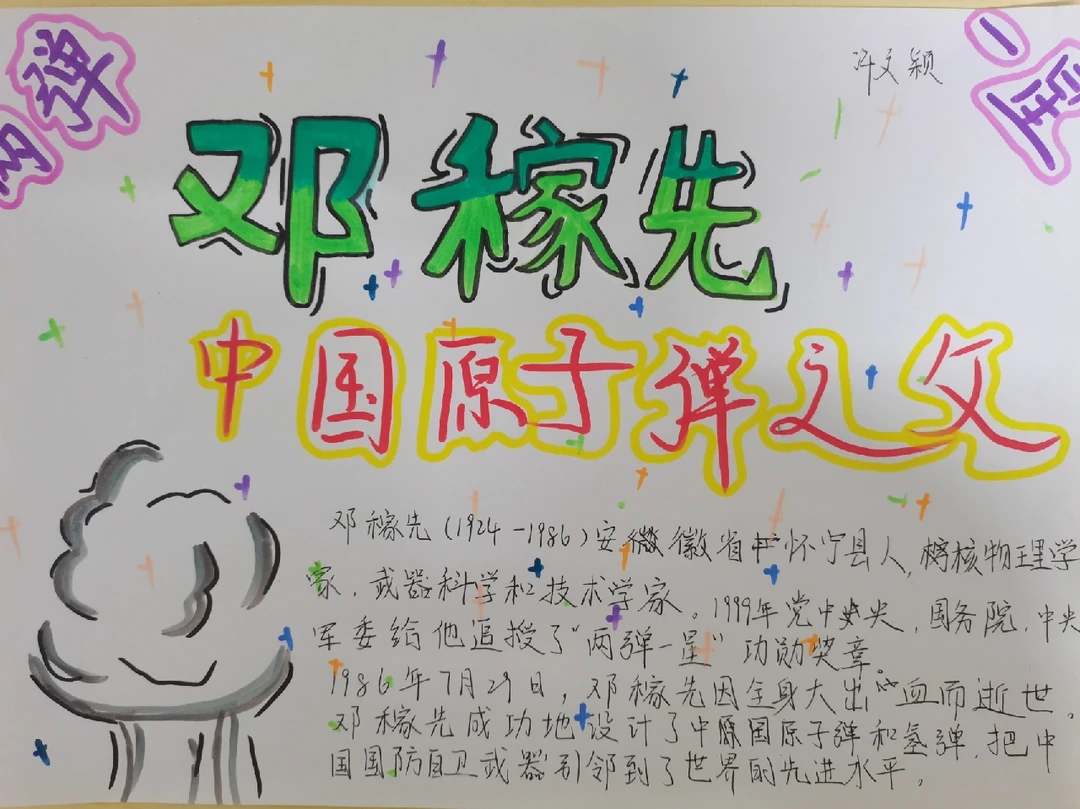 两弹
一星
许文颖
邓稼先
中国原子弹之父
邓稼先(1924-1986)安徽省怀宁县人,核物理学
家,武器科学和技术学家。1999年党中央,国务院,中央
军委给他追授了“两弹一星”功勋奖章。
1986年7月29日,邓稼先因全身大出血而逝世。
邓稼先成功地设计了中国原子弹和氢弹,把中
国国防自卫武器引邻到了世界的先进水平。